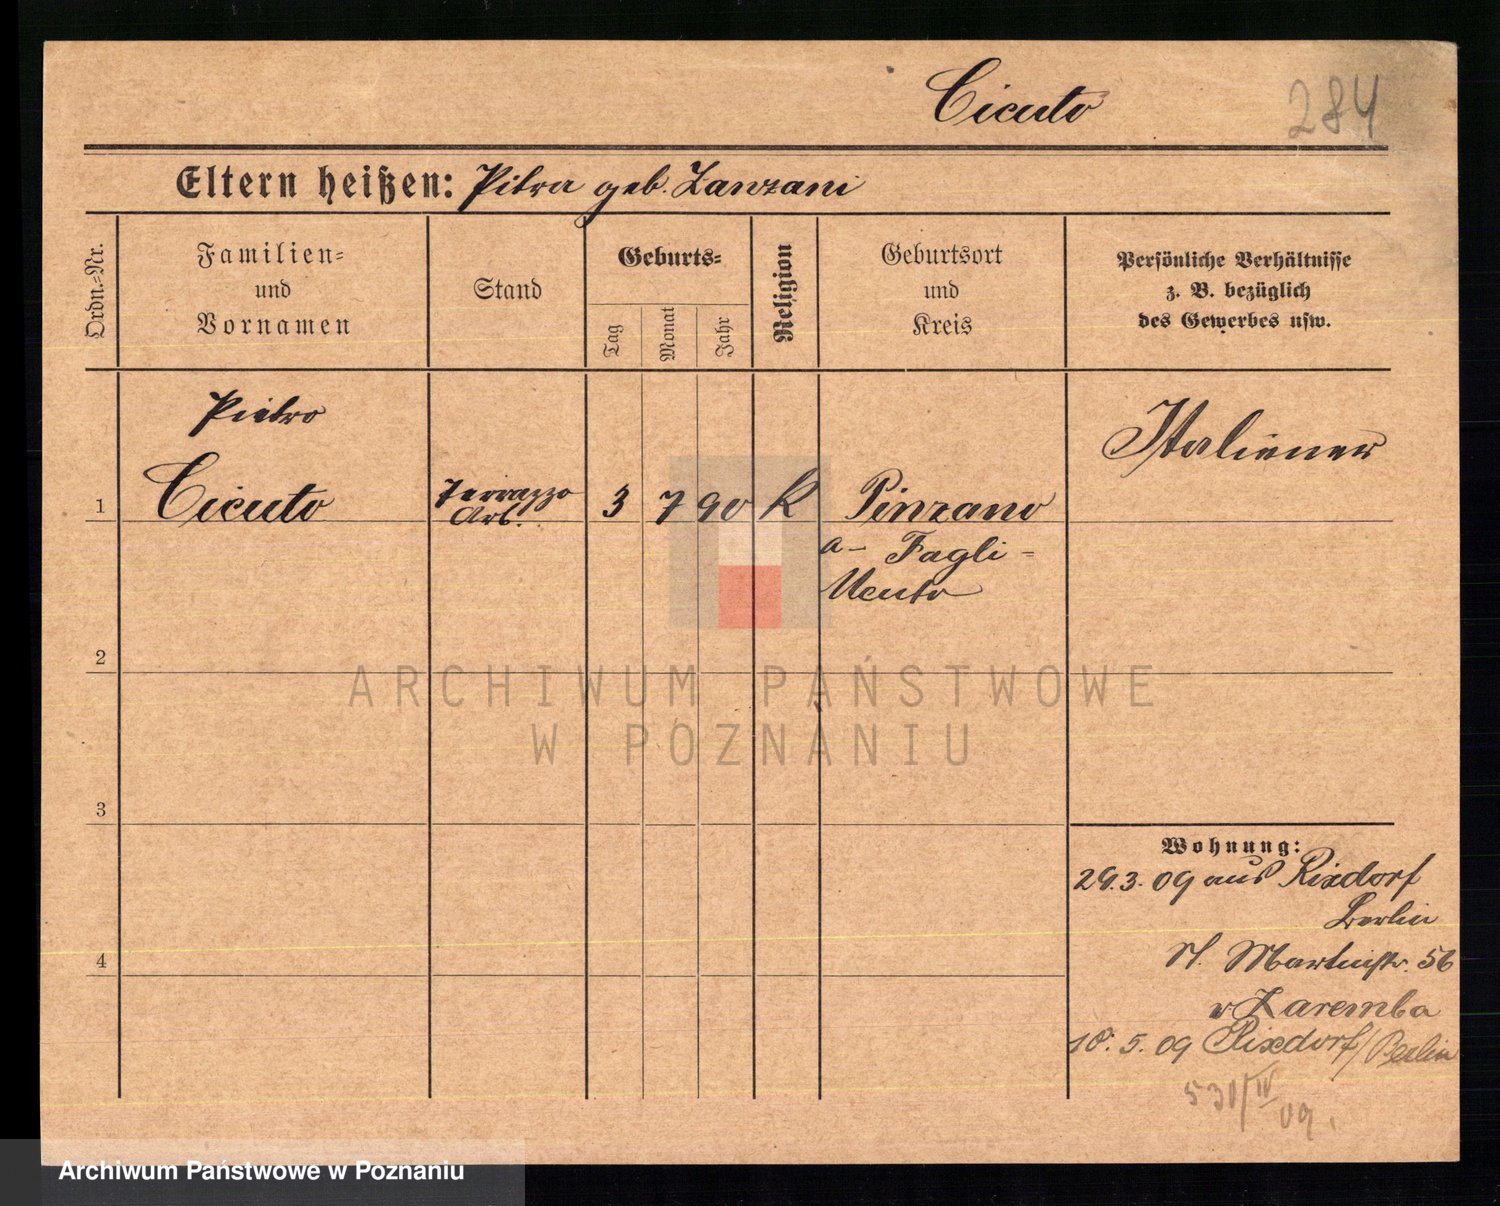 Cicuto
284
Eltern heißen: Pitra geb. Zanzani
Ordn.-Nr.
Familien-
und
Vornamen
Stand
Geburts-
Tag
Monat
Jahr
Religion
Geburtsort
und
Kreis
Persönliche Verhältnisse
z. B. bezüglich
des Gewerbes usw.
Pietro
Italiener
1 Cicuto Terrazzo 3 7 90 K Pinzano
Arb.
a- Fagli-
Mento
2
ARCHIWUM PAŃSTWOWE
W POZNANIU
3
Wohnung:
29.3.09 aus Rixdorf
Berlin
St. Martinstr. 56
4
v Zaremba
18.5.09 Rixdorf/Berlin
531/IV
09.
Archiwum Państwowe w Poznaniu